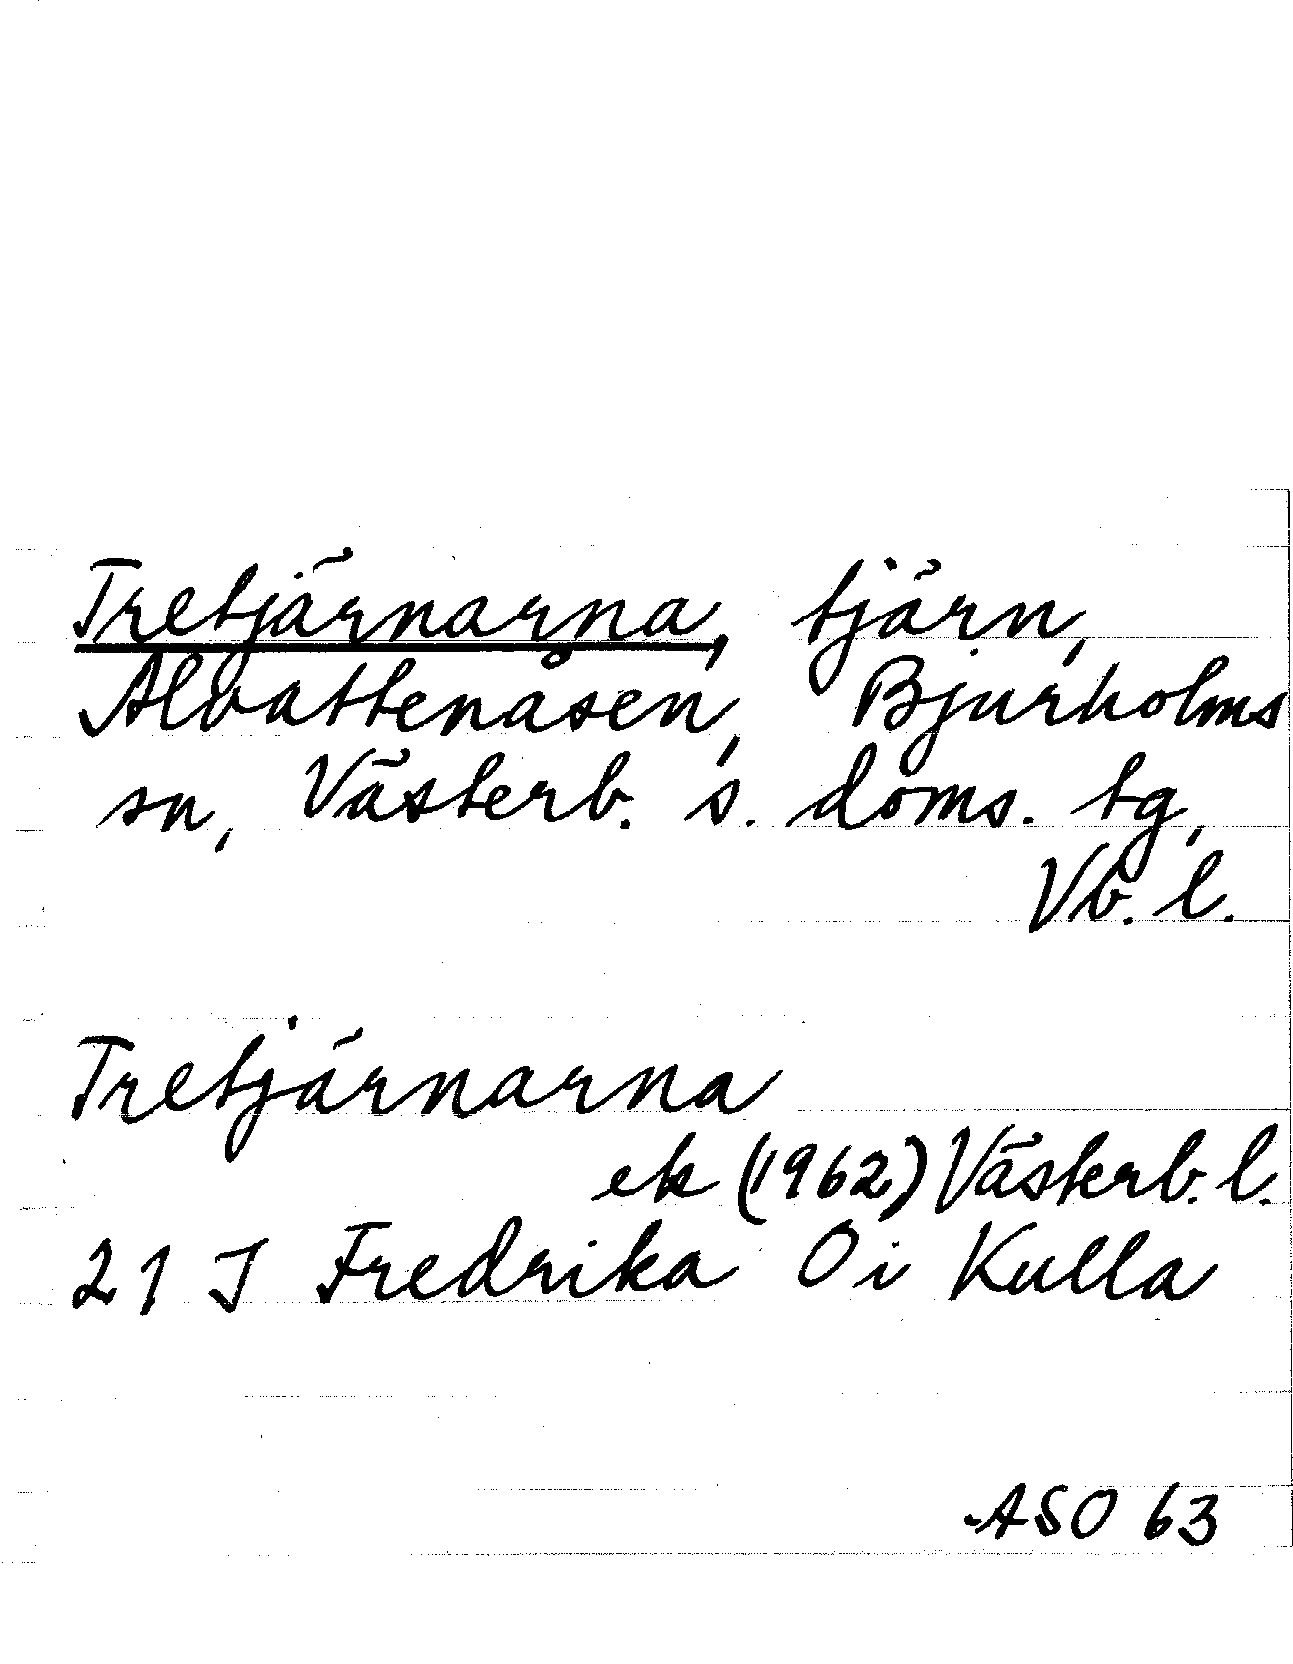 Tretjärnarna, tjärn,
Alvattenåsen, Bjurholms
sn, Västerb. s. doms. tg,
Vb. l.
Tretjärnarna
ek (1962) Västerb. l.
21 J Fredrika Ö i Kulla
ASO 63